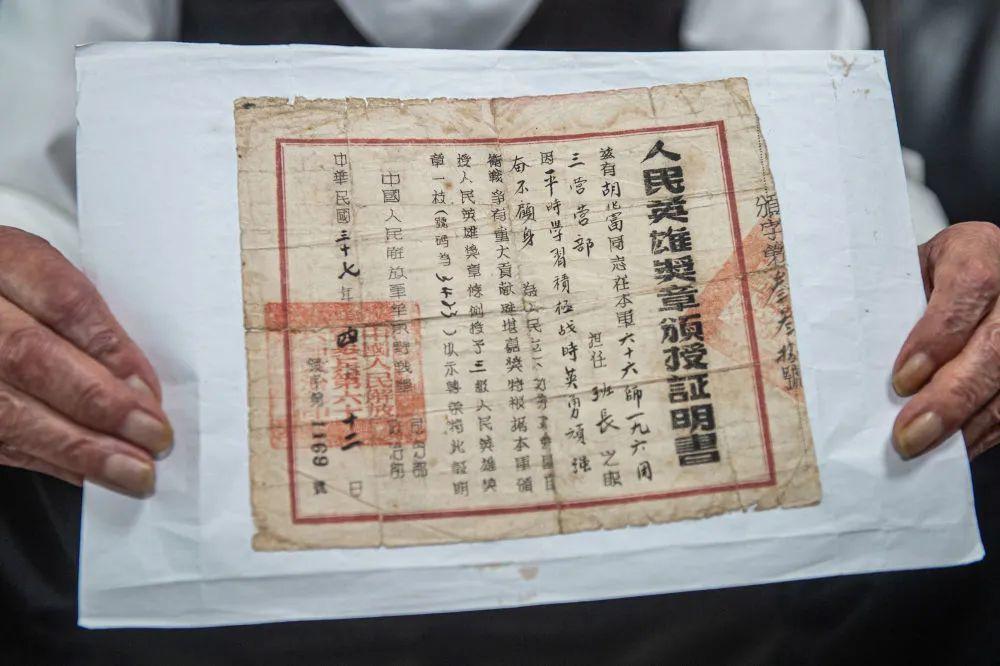 頒字第
人民英雄獎章頒授証明書
茲有胡兆富同志在本軍六十六师一九六团
三营营部 担任班長之职
因平時學習積極战時英勇頑強
奋不顧身 為人民
衛戰爭有重大貢献殊堪嘉獎特根据本軍頒
授人民英雄獎章條例授予三級人民英雄獎
章一枚(號碼为3433)以示 榮特此証明
中國人民解放軍華東野戰軍
中華民國三十七年四 十二日
字第1169號
中國人民解放
第六十